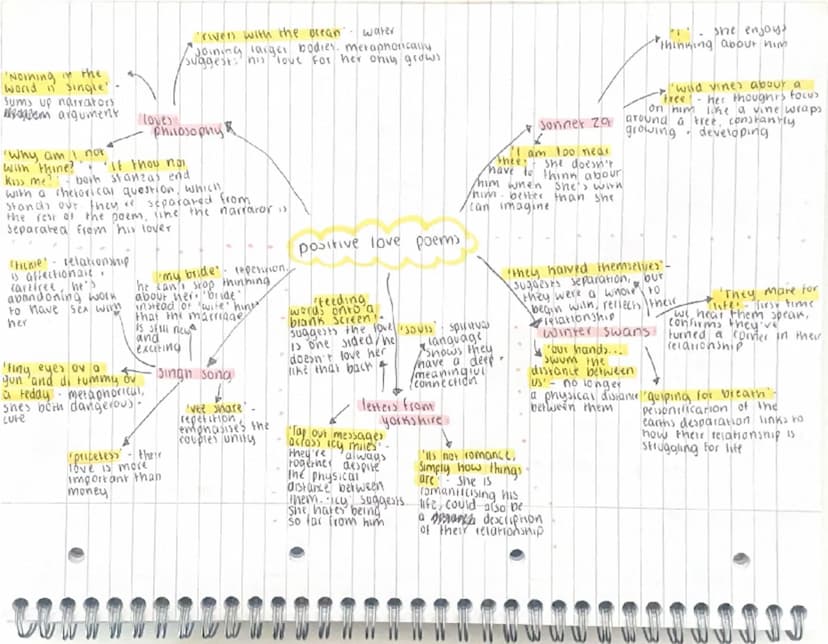 positive love poems
loves
philosophy
'rivers with the ocean' - water
joining larger bodies. metaphorically
suggests his love for her only grows
'Nothing in the
world is single' -
sums up narrators
argument
'Why am I not
with thine?' + 'if thou not
kiss me?' - both stanzas end
with a rhetorical question, which
stands out. they're separated from
the rest of the poem, like the narrator is
separated from his lover
sonnet 29
'I' - she enjoys
thinking about him
'wild vines about a
tree' - her thoughts focus
on him like a vine wraps
around a tree, constantly
growing + developing
'I am too near
thee' - she doesn't
have to think about
him when she's with
him - better than she
can imagine
singh song
relationship
is affectionate +
carefree. he's
abandoning work
to have sex with
her
'my bride' - repetition.
he can't stop thinking
about her. 'bride'
instead of 'wife' hints
that the marriage
is still new
and
exciting
'tiny eyes ov a
gun' 'and di tummy ov
a teddy' - metaphorical,
shes both dangerous +
cute
'vee share' -
repetition
emphasises the
couples unity
'priceless' - their
love is more
important than
money
letters from
yorkshire
'feeding
words onto a
blank screen' -
suggests the love
is one sided/he
doesn't love her
like that back
'souls' - spiritual
language
shows they
have a deep +
meaningful
connection
'Tap out messages
across icy miles' -
they're always
together despite
the physical
distance between
them. 'icy' suggests
she hates being
so far from him
'its not romance,
simply how things
are' - she is
romanticising his
life, could also be
a description
of their relationship
winter swans
'they halved themselves' -
suggests separation, but
they were a whole to
begin with, reflects their
relationship
'They mate for
life' - first time
we hear them speak,
confirms they've
turned a corner in their
relationship
'our hands...
swum the
distance between
us' - no longer
a physical distance
between them
'gulping for breath'
personification of the
earths desparation links to
how their relationship is
struggling for life